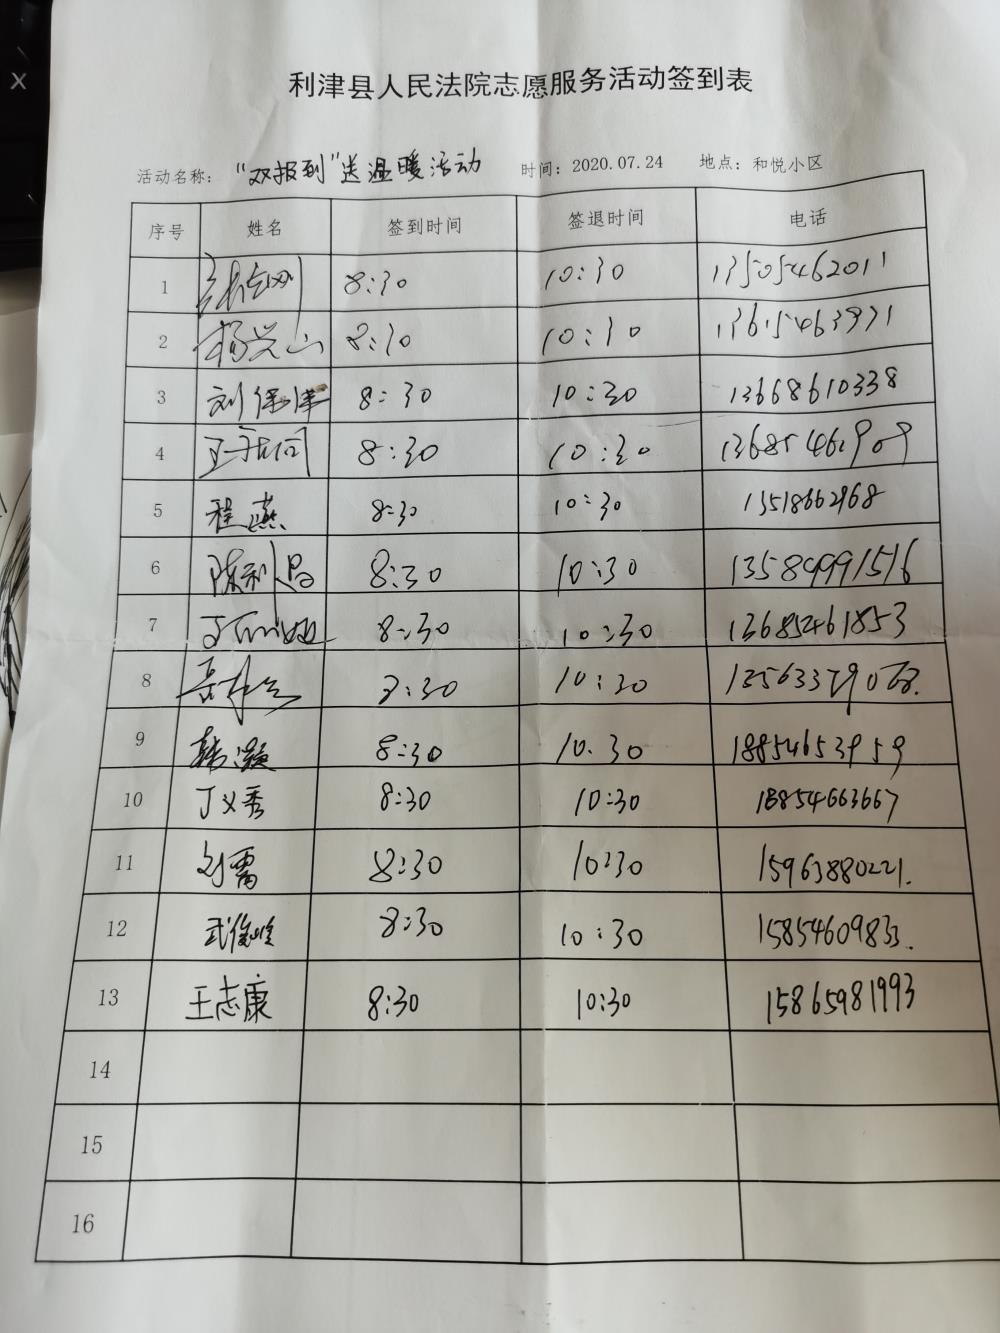 利津县人民法院志愿服务活动签到表
活动名称：“双报到”送温暖活动 时间：2020.07.24 地点：和悦小区
序号 姓名 签到时间 签退时间 电话
1 8:30 10:30 13505462011
2 杨兴山 8:30 10:30 13615463931
3 刘保泽 8:30 10:30 13668610338
4 8:30 10:30
5 程燕 8:30 10:30 13518662968
6 陈利昌 8:30 10:30 13589991516
7 8:30 10:30 13685461853
8 8:30 10:30
9 韩灏 8:30 10:30 18854653959
10 丁义秀 8:30 10:30 18854663667
11 刘霄 8:30 10:30 15963880221.
12 武俊峻 8:30 10:30 15854609833.
13 王志康 8:30 10:30 15865981993
14
15
16